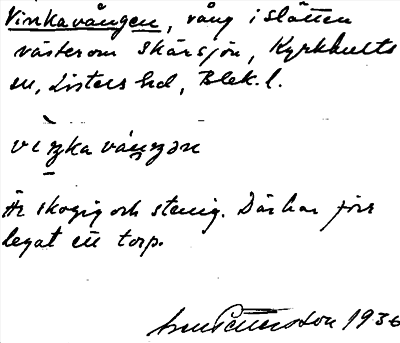 Vinkavången, vång i slätten
väster om Skärsjön, Kyrkhults
sn, Listers hd, Blek. l.
viŋkavåŋŋən
Är skogig och stenig. Där har förr
legat ett torp.
Pettersson 1936